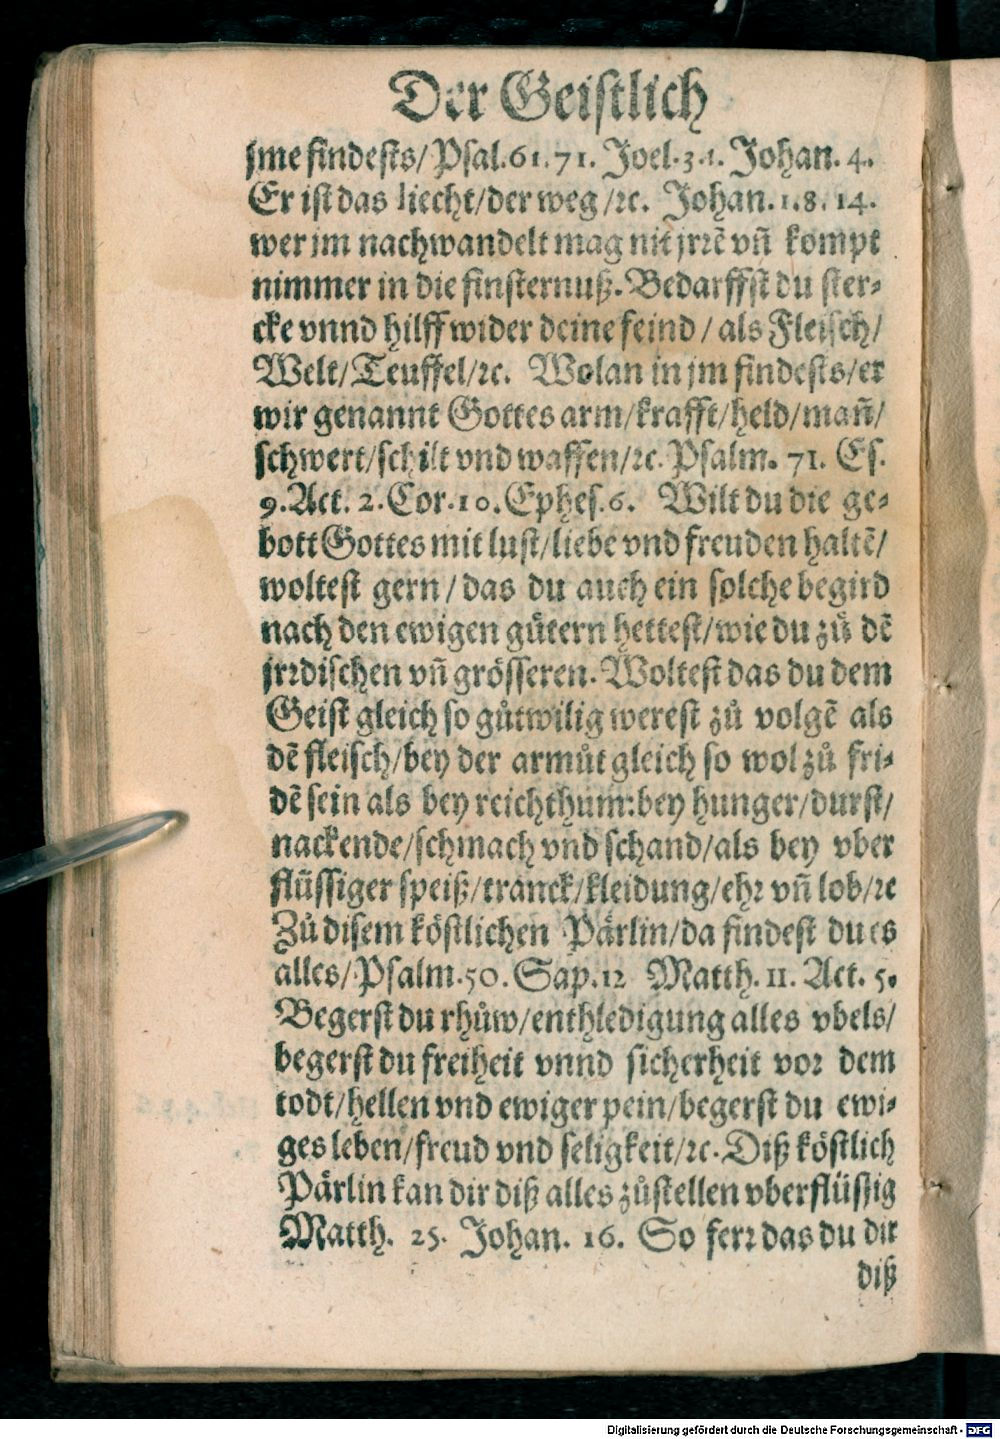 Der Geistlich
jme findests/ Psal.61.71. Joel.3.1. Johan. 4.
Er ist das liecht/der weg/ꝛc. Johan.1.8.14.
wer jm nachwandelt mag nit jrrē vñ kompt
nimmer in die finsternuß. Bedarffst du ster-
cke vnnd hilff wider deine feind/ als Fleisch/
Welt/Teuffel/ꝛc. Wolan in jm findests/er
wir genannt Gottes arm/krafft/held/mañ/
schwert/schilt vnd waffen/ꝛc. Psalm. 71. Es.
9. Act. 2. Cor.10. Ephes.6. Wilt du die ge-
bott Gottes mit lust/liebe vnd freuden haltē/
woltest gern/ das du auch ein solche begird
nach den ewigen gůtern hettest/wie du zů dē
jrrdischen vñ grösseren. Woltest das du dem
Geist gleich so gůtwilig werest zů volgē als
dē fleisch/bey der armůt gleich so wol zů fri-
dē sein als bey reichthum:bey hunger/durst/
nackende/schmach vnd schand/als bey vber
flüssiger speiß/tranck/kleidung/ehr vñ lob/ꝛc
Zů disem köstlichen Pärlin/da findest du es
alles/ Psalm.50. Sap.12 Matth. 11. Act. 5.
Begerst du rhůw/enthledigung alles vbels/
begerst du freiheit vnnd sicherheit vor dem
todt/hellen vnd ewiger pein/begerst du ewi-
ges leben/freud vnd seligkeit/ꝛc. Diß köstlich
Pärlin kan dir diß alles zůstellen vberflüssig
Matth. 25. Johan. 16. So ferr das du dir
diß
Digitalisierung gefördert durch die Deutsche Forschungsgemeinschaft - DFG